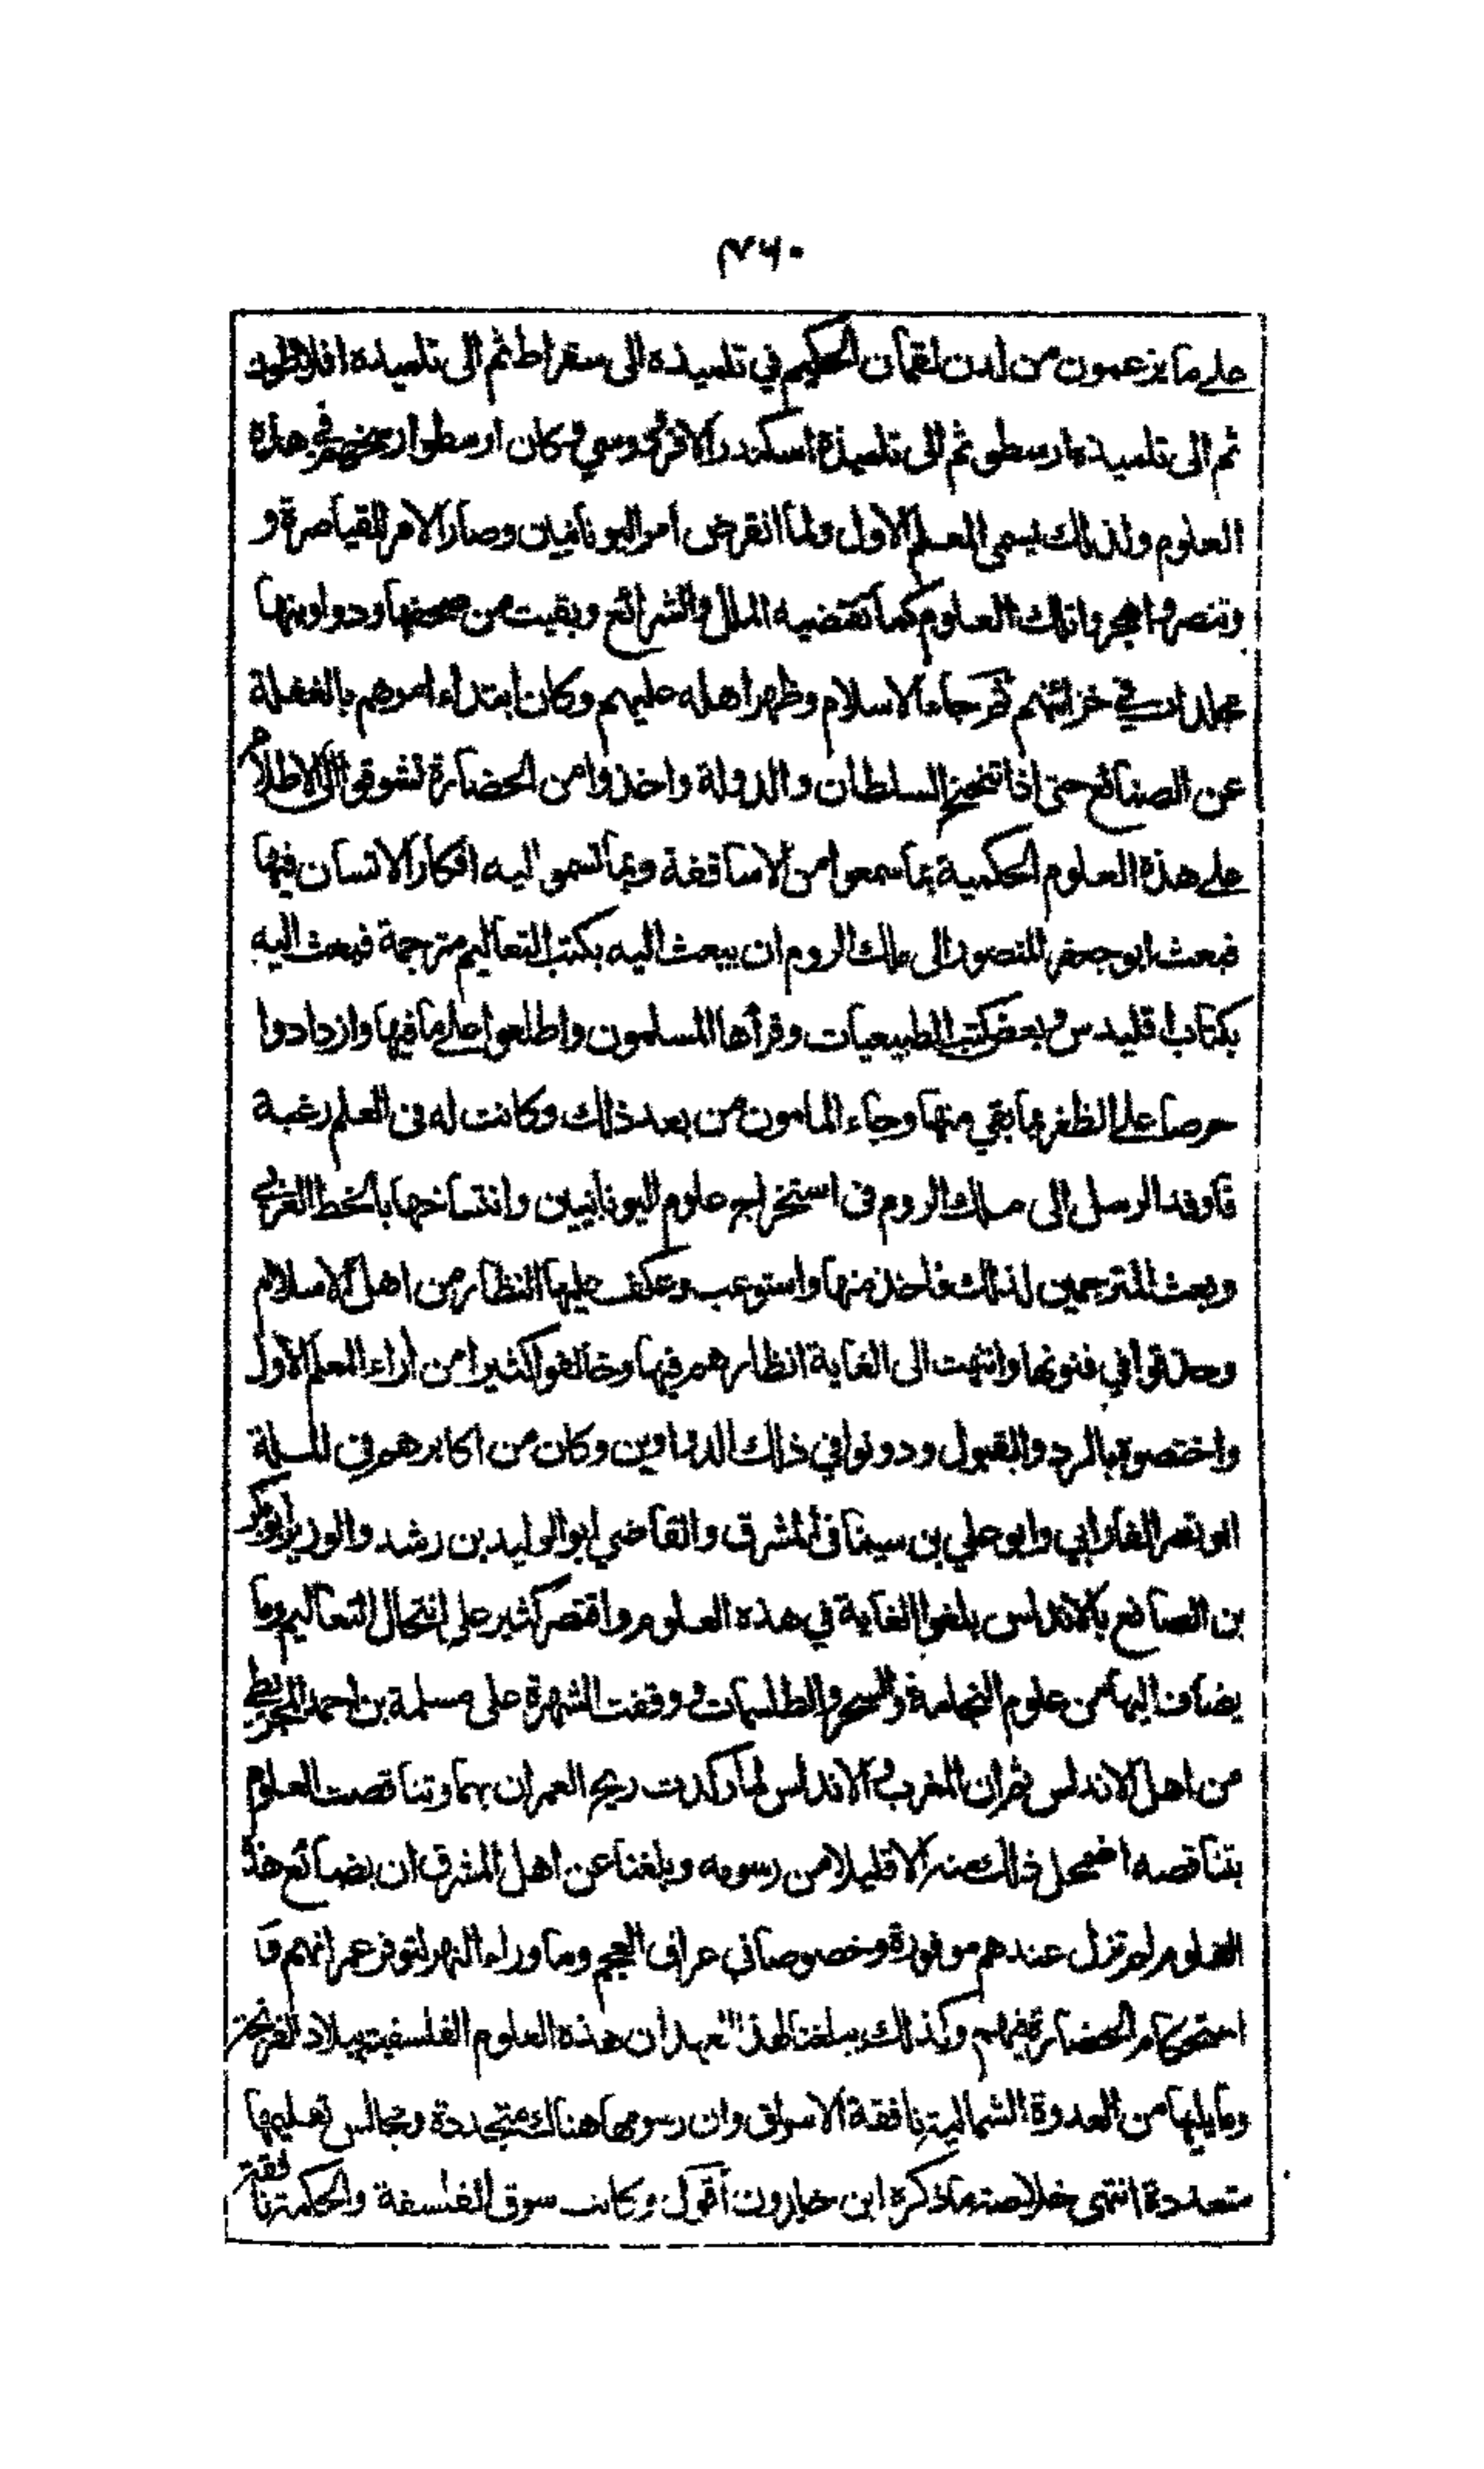 ٣٦٠
على ما يزعمون من لدن لقمان الحكيم في تلميذه الى سقراط ثم الى تلميذه افلاطون
ثم الى تلميذه ارسطو ثم الى تلميذه اسكندر الافرودوسي وكان ارسطو ارسخهم في هذه
العلوم ولذلك يسمى المعلم الاول ولما انقرض امر اليونانيين وصار الامر للقياصرة و
وتنصروا هجروا تلك العلوم كما تقتضيه الملل والشرائع وبقيت من صحفها ودواوينها
مجلدات في خزائنهم ثم جاء الاسلام وظهر اهله عليهم وكان ابتداء امرهم بالغفلة
عن الصنائع حتى اذا تبحبح السلطان والدولة واخذوا من الحضارة تشوقوا الى الاطلاع
على هذه العلوم الحكمية بما سمعوا من الاساقفة وبما تسمو اليه افكار الانسان فيها
فبعث ابو جعفر المنصور الى ملك الروم ان يبعث اليه بكتب التعاليم مترجمة فبعث اليه
بكتاب اقليدس وبعض كتب الطبيعيات وقرأها المسلمون واطلعوا على ما فيها وازدادوا
حرصا على الظفر بما بقي منها وجاء المامون من بعد ذلك وكانت له في العلم رغبة
فاوفد الرسل الى ملك الروم في استخراج علوم اليونانيين وانتساخها بالخط العربي
وبعث المترجمين لذلك فاخذ منها واستوعب وعكف عليها النظار من اهل الاسلام
وحذقوا في فنونها وانتهت الى الغاية انظارهم فيها وخالفوا كثيرا من اراء المعلم الاول
واختصوه بالرد والقبول ودونوا في ذلك الدواوين وكان من اكابرهم في الملة
ابو نصر الفارابي وابو علي بن سينا في المشرق والقاضي ابو الوليد بن رشد والوزير ابو بكر
بن الصائع بالاندلس بلغوا الغاية في هذه العلوم واقتصر كثير على انتحال التعاليم وما
يضاف اليها من علوم النجامة والسحر والطلسمات ووقفت الشهرة على مسلمة بن احمد المجريطي
من اهل الاندلس ثم ان المغرب والاندلس لما ركدت ريح العمران بهما وتناقصت العلوم
بتناقصه اضمحل ذلك منه الا قليلا من رسومه وبلغنا عن اهل المشرق ان بضائع هذه
العلوم لم تزل عندهم موفورة وخصوصا في عراق العجم وما وراء النهر لتوفر عمرانهم وا
استحكام الحضارة فيهم وكذلك يبلغنا لهذا العهد ان هذه العلوم الفلسفية ببلاد الفرنجة
وما يليها من العدوة الشمالية نافقة الاسواق وان رسومها هناك متجددة ومجالس تعليمها
متعددة انتهى خلاصة ما ذكره ابن خلدون اقول وكانت سوق الفلسفة والحكمة نافقة